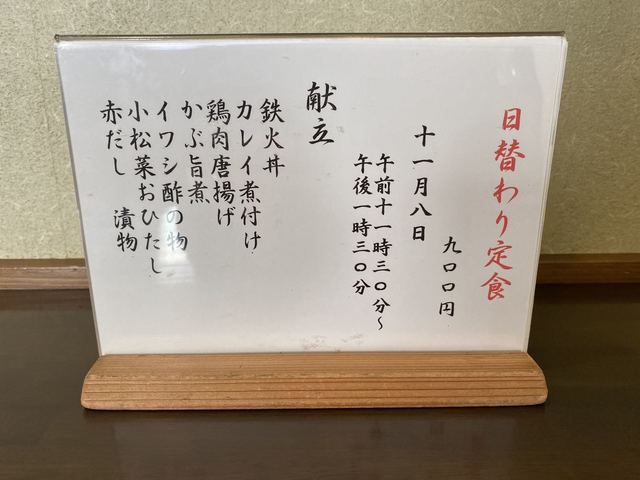 日替わり定食
九〇〇円
十一月八日
午前十一時三〇分～
午後一時三〇分
献立
鉄火丼
カレイ煮付け
鶏肉唐揚げ
かぶ旨煮
イワシ酢の物
小松菜おひたし
赤だし　漬物